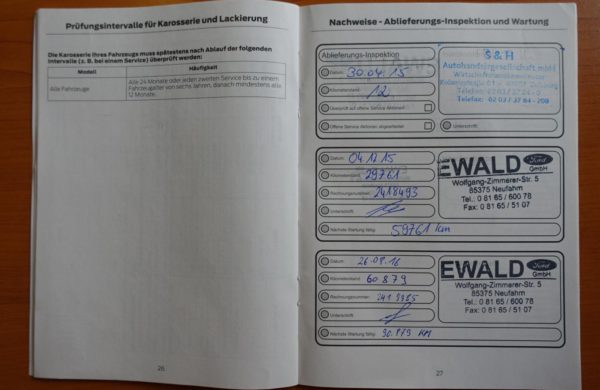 Prüfungsintervalle für Karosserie und Lackierung
Die Karosserie Ihres Fahrzeugs muss spätestens nach Ablauf der folgenden
Intervalle (z. B. bei einem Service) überprüft werden:
Modell Häufigkeit
Alle Fahrzeuge
Alle 24 Monate oder jeden zweiten Service bis zu einem
Fahrzeugalter von sechs Jahren, danach mindestens alle
12 Monate.
26
Nachweise - Ablieferungs-Inspektion und Wartung
Ablieferungs-Inspektion
Datum: 30.04.15
Kilometerstand: 12
Überprüft auf offene Service Aktionen
Offene Service Aktionen abgearbeitet
S & H
Autohandelsgesellschaft mbH
Telefax: 02 03 / 37 84 - 208
Unterschrift:
Datum: 04.12.15
Kilometerstand: 29761
Rechnungsnummer: 2418493
Unterschrift:
Nächste Wartung fällig: 59761 km
EWALD Ford
GmbH
Wolfgang-Zimmerer-Str. 5
85375 Neufahrn
Tel.: 0 81 65 / 600 78
Fax: 0 81 65 / 51 07
Datum: 26.09.16
Kilometerstand: 60879
Rechnungsnummer:
Unterschrift:
Nächste Wartung fällig: 90.879 KM
EWALD Ford
GmbH
Wolfgang-Zimmerer-Str. 5
85375 Neufahrn
Tel.: 0 81 65 / 600 78
Fax: 0 81 65 / 51 07
27